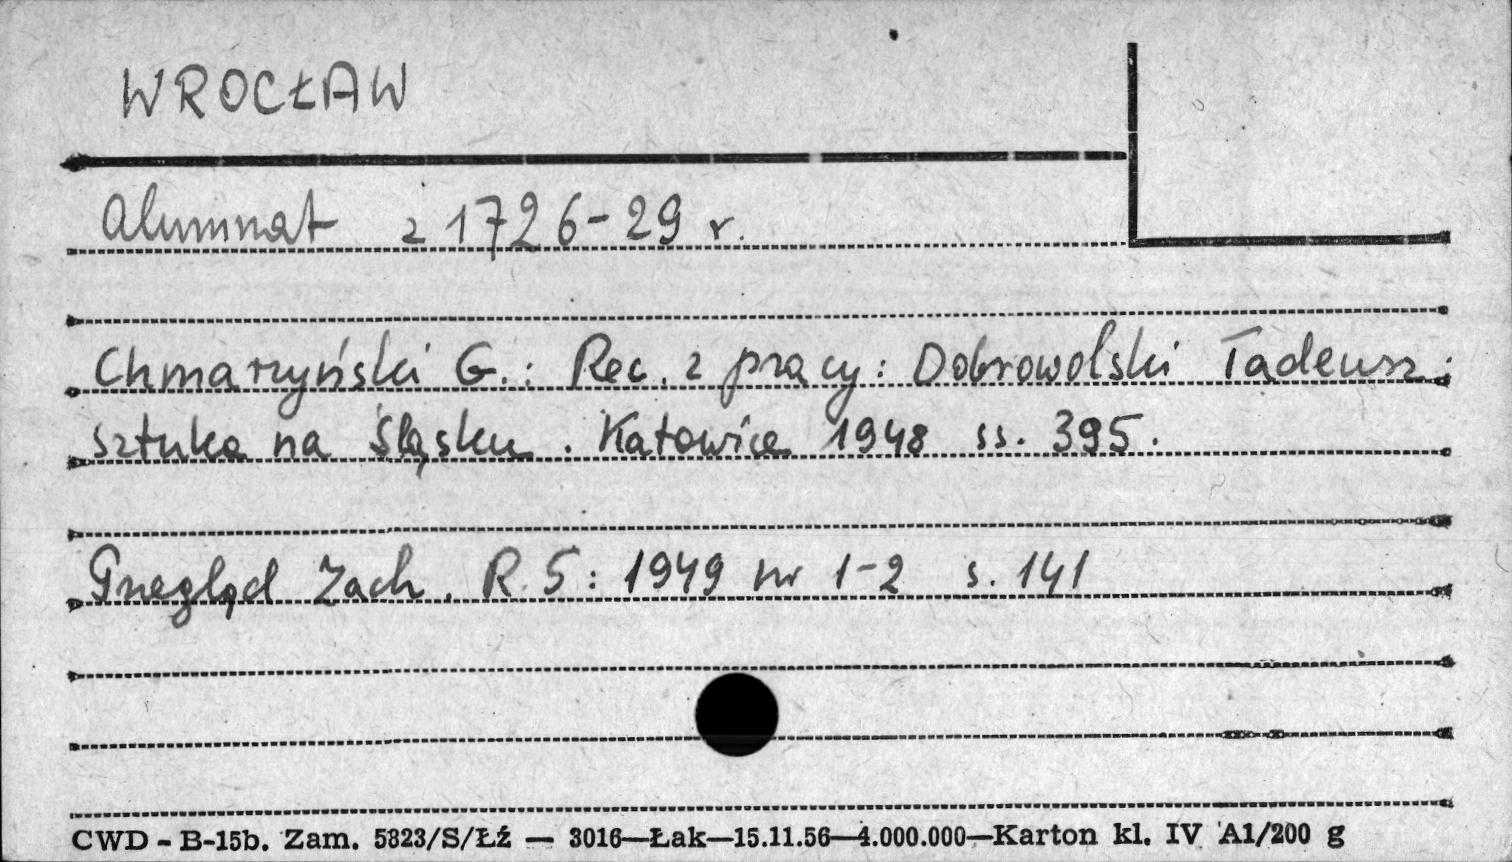 WROCŁAW
Alumnat z 1726-29 r.
Chmarzyński G.: Rec. z pracy: Dobrowolski Tadeusz:
Sztuka na Śląsku. Katowice 1948 ss. 395.
Przegląd Zach. R. 5: 1949 nr 1-2 s. 141
CWD - B-15b. Zam. 5823/S/Łź — 3016—Łak—15.11.56—4.000.000—Karton kl. IV A1/200 g